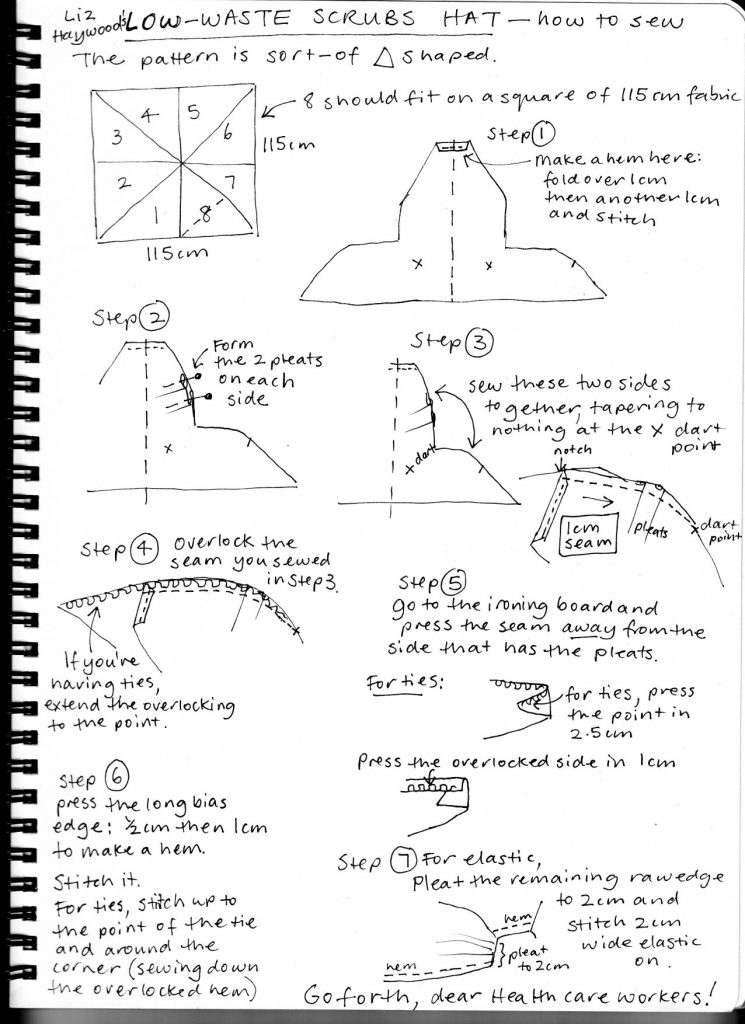 Liz
Haywood's LOW-WASTE SCRUBS HAT - how to sew
The pattern is sort-of △ shaped.
8 should fit on a square of 115cm fabric
4 5
3 6
2 7
1 8
115cm
115cm
Step 1
make a hem here:
fold over 1cm
then another 1cm
and stitch
x x
Step 2
Form
the 2 pleats
on each
side
x
Step 3
sew these two sides
together, tapering to
nothing at the x dart
point
x dart
notch
1cm
seam
pleats
x dart
point
Step 4 overlock the
seam you sewed
in Step 3.
x
If you're
having ties,
extend the overlocking
to the point.
Step 5
go to the ironing board and
press the seam away from the
side that has the pleats.
For ties:
for ties, press
the point in
2.5cm
Press the overlocked side in 1cm
Step 6
press the long bias
edge: ½cm then 1cm
to make a hem.
Stitch it.
For ties, stitch up to
the point of the tie
and around the
corner (sewing down
the overlocked hem)
Step 7 For elastic,
Pleat the remaining raw edge
to 2cm and
stitch 2cm
wide elastic
on.
hem
pleat
to 2cm
hem
Go forth, dear Health care workers!